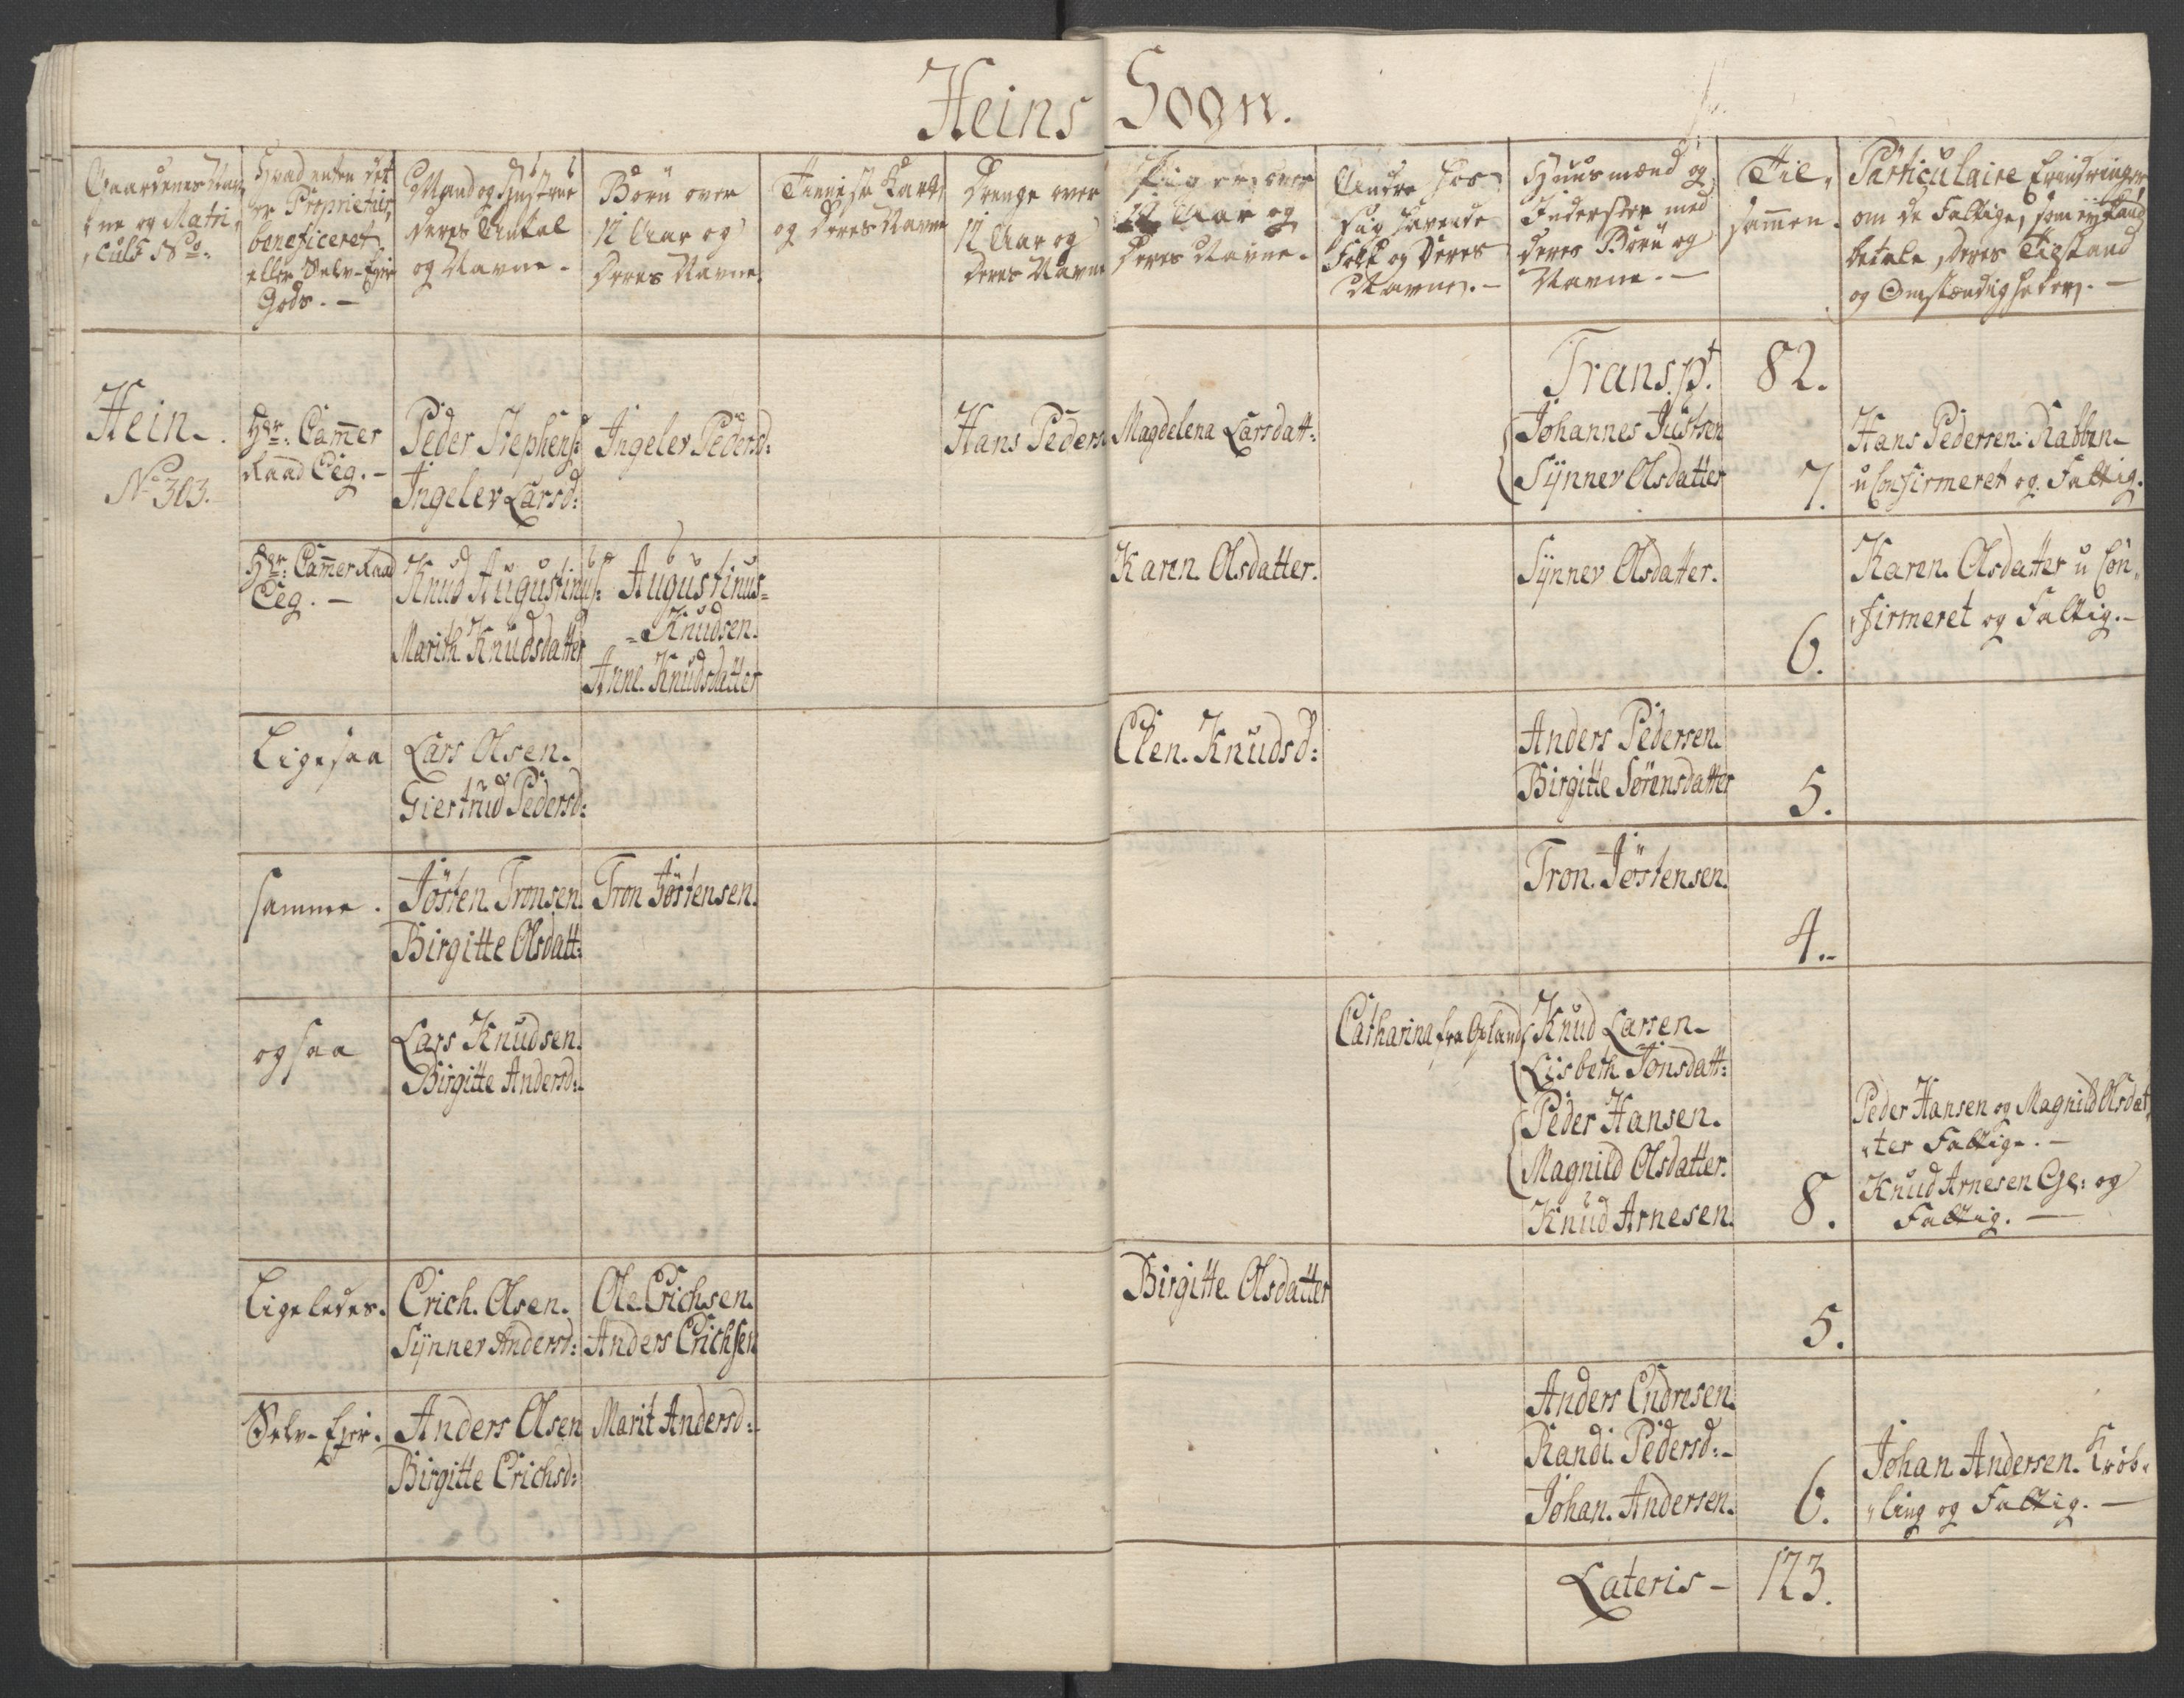 Heins Sogn.
Gaardenes Nav
ne og Matri,
culs No.
Hvad enten det
er Proprietair,
beneficeret,
eller Selv-Ejer
Gods. -
Mand og Hustrue
deres Antal
og Navne -
Børn over
12 Aar og
Deres Navne.
Tieneste Karle
og Deres Navne
Drenge over
12 Aar og
Deres Navne
Piger over
12 Aar og
Deres Navne -
Andre hos
sig havende
Folk og Deres
Navne. -
Huusmænd og
Inderster med
deres Børn og
Navne. -
Til,
sammen.
Particulaire Erindringer
om de Fattige, som ej kand
betale, deres Tilstand
og Omstændigheder. -
Transpt. 82.
Hein -.
No 303.
Hr: Cammer
Raad Ceg. -
Peder Stephens:
Ingelev Larsd:
Ingelev Pedersd:
Hans Peders
Magdelena Larsdatt:
Johannes Justsen
Synnev Olsdatter
7.
Hans Pedersen Kabben-
u Confirmeret og Fattig.
Hr: Cammer Raad
Ceg. -
Knud Augustinus:
Marith Knudsdatter
Augustinus=
=Knudsen.
Anne Knudsdatter
Karen Olsdatter.
Synnev Olsdatter.
6.
Karen Olsdatter u Con,
firmeret og Fattig. -
Ligesaa
Lars Olsen.
Giertrud Pedersd:
Elen Knudsd:
Anders Pedersen.
Birgitte Sørensdatter
5.
samme.
Jösten Tronsen.
Birgitte Olsdatt:
Tron Jöstensen.
Tron Jöstensen.
4.-
ogsaa
Lars Knudsen.
Birgitte Andersd:
Catharina fra Opland
Knud Larsen-
Lisbeth Jonsdatt:
Peder Hansen.
Magnild Olsdatter.
Knud Arnesen.
8.
Peder Hansen og Magnild Olsdat,
ter Fattige. -
Knud Arnesen Gl: og
Fattig. -
Ligeledes.
Erich Olsen.
Synnev Andersd:
Ole Erichsen.
Anders Erichsen
Birgitte Olsdatter
5.
Selv-Ejer.
Anders Olsen
Birgitte Erichsd:
Marit Andersd:
Anders Endresen.
Randi Pedersd:-
Johan Andersen.
6.
Johan Andersen Krøb,
ling og Fattig. -
Lateris - 123.